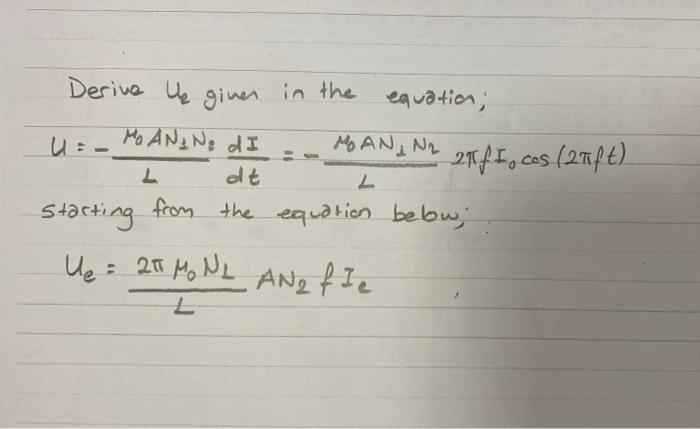 Derive Ue given in the equation;
U = - μ₀AN₁N₂/L dI/dt = - μ₀AN₁N₂/L 2πfI₀cos(2πft)
starting from the equation below;
Ue = 2πμ₀N₁/L AN₂fIe